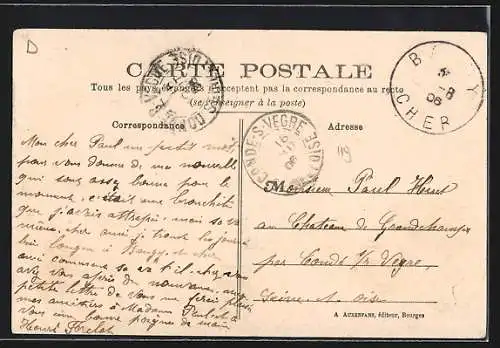 D
CARTE POSTALE
Tous les pays étrangers n'acceptent pas la correspondance au recto
(se renseigner à la poste)
Correspondance
Adresse
CHER
8
06
CONDE-S-VEGRE
SEINE-ET-OISE
16
06
49
Mon cher Paul un petit mot
pour vous donner de me nouvelle
qui sont assez bonne pour le
moment, c'était une bronchite
que j'avais attrapé mais sa va
mieux, cher ami je trouve les jours
bien longun à Baugy,
ami comment sa va t'il chez
avez vous
petite lettre de vous me ferai plaisir
mes amitiers à Madame Paul et à
vous une bonne poignée de main
Henri
Monsieur Paul
au Château de Grandchamps
par Condé s/r Vegre
Seine & Oise
A AUXENFANS, éditeur, Bourges